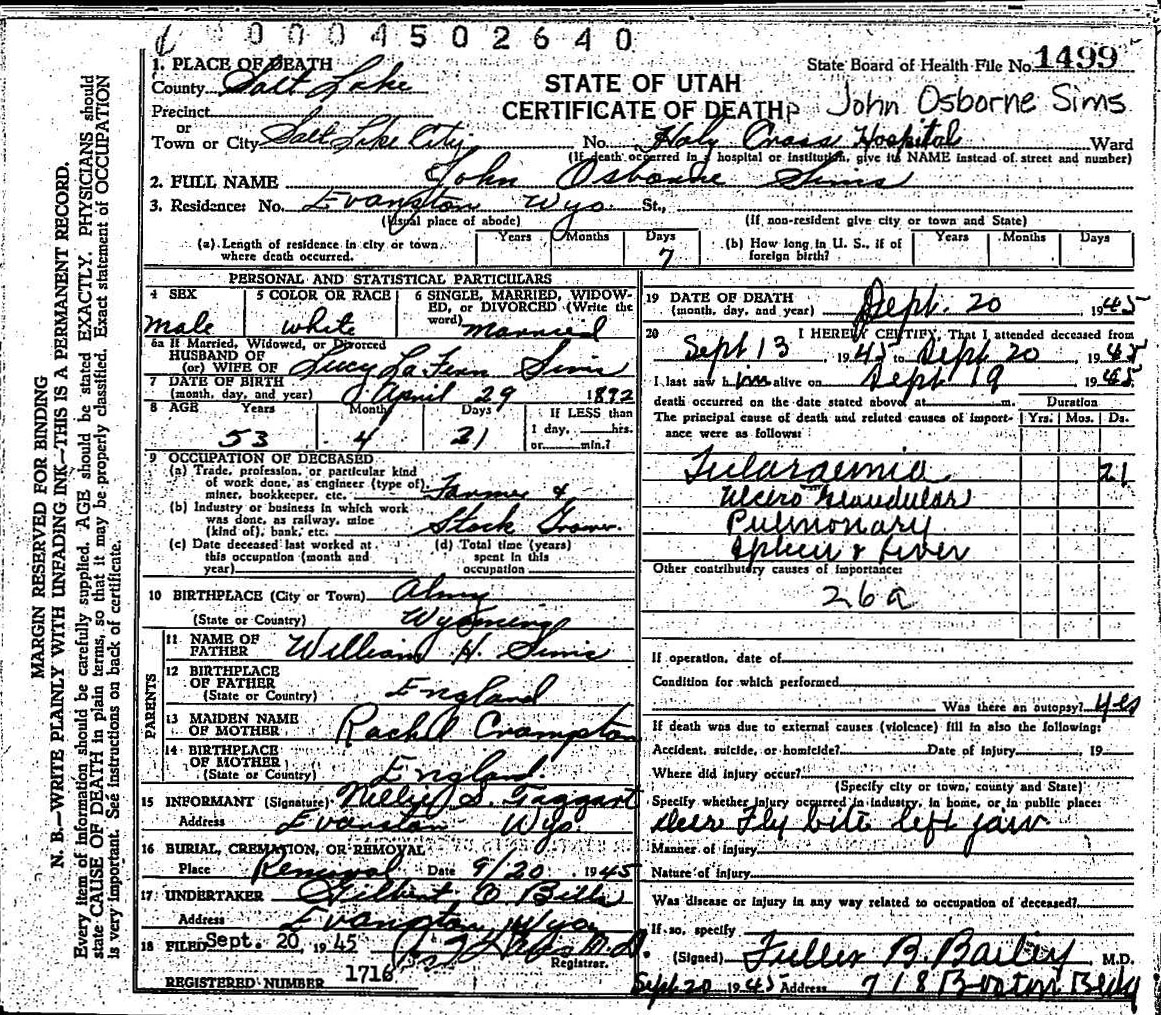 0 0 0 4 5 0 2 6 4 0
1. PLACE OF DEATH
County Salt Lake
STATE OF UTAH
CERTIFICATE OF DEATH
State Board of Health File No. 1499
John Osborne Sims
Precinct
or
Town or City Salt Lake City No. Holy Cross Hospital Ward
(If death occurred in a hospital or institution, give its NAME instead of street and number)
2. FULL NAME John Osborne Sims
3. Residence: No. Evanston Wyo. St.,
(Usual place of abode) (If non-resident give city or town and State)
(a) Length of residence in city or town where death occurred. Years Months Days 7
(b) How long in U. S., if of foreign birth? Years Months Days
PERSONAL AND STATISTICAL PARTICULARS
4 SEX male
5 COLOR OR RACE white
6 SINGLE, MARRIED, WIDOWED, or DIVORCED (Write the word) married
6a If Married, Widowed, or Divorced
HUSBAND OF
(or) WIFE OF Lucy La Fern Sims
7 DATE OF BIRTH
(month, day, and year) April 29 1892
8 AGE Years 53 Month 4 Days 21 If LESS than 1 day, hrs. or min.?
9 OCCUPATION OF DECEASED
(a) Trade, profession, or particular kind
of work done, as engineer (type of)
miner, bookkeeper, etc. Farmer &
(b) Industry or business in which work
was done, as railway, mine
(kind of), bank, etc. Stock Grower.
(c) Date deceased last worked at
this occupation (month and
year)
(d) Total time (years)
spent in this
occupation
10 BIRTHPLACE (City or Town) Almy
(State or Country) Wyoming
PARENTS
11 NAME OF
FATHER William H. Sims
12 BIRTHPLACE
OF FATHER
(State or Country) England
13 MAIDEN NAME
OF MOTHER Rachel Crampton
14 BIRTHPLACE
OF MOTHER
(State or Country) England.
15 INFORMANT (Signature) Nellie S. Taggart
Address Evanston Wyo.
16 BURIAL, CREMATION, OR REMOVAL
Place Removal Date 9/20 1945
17 UNDERTAKER Gilbert O Bills
Address Evanston Wyo
18 FILED Sept. 20 1945 M.D.
Registrar.
REGISTERED NUMBER 1716
19 DATE OF DEATH
(month, day, and year) Sept. 20 1945
20 I HEREBY CERTIFY, That I attended deceased from
Sept 13, 1945 to Sept 20 1945
I last saw him alive on Sept 19 1945
death occurred on the date stated above, at m. Duration
The principal cause of death and related causes of importance were as follows: Yrs. Mos. Ds.
Tularaemia 21
Ulcero Glandular
Pulmonary
Spleen & Liver
Other contributory causes of importance:
26a
If operation, date of
Condition for which performed
Was there an autopsy? yes
If death was due to external causes (violence) fill in also the following:
Accident, suicide, or homicide? Date of Injury , 19
Where did injury occur?
(Specify city or town, county and State)
Specify whether injury occurred in industry, in home, or in public place:
Deer Fly bite left jaw
Manner of injury
Nature of injury
Was disease or injury in any way related to occupation of deceased?
If so, specify
(Signed) Fuller B. Bailey M.D.
Sept 20 1945 Address 718 Boston Bldg
MARGIN RESERVED FOR BINDING
N. B.—WRITE PLAINLY WITH UNFADING INK—THIS IS A PERMANENT RECORD.
Every item of information should be carefully supplied. AGE should be stated EXACTLY. PHYSICIANS should
state CAUSE OF DEATH in plain terms, so that it may be properly classified. Exact statement of OCCUPATION
is very important. See instructions on back of certificate.